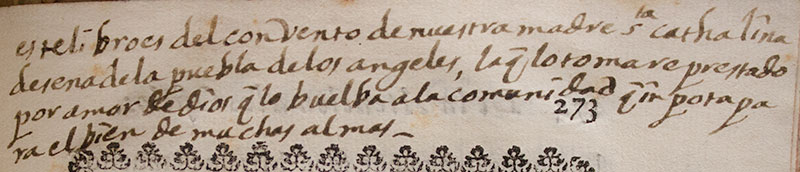 este libro es del convento de nuestra madre sta cathalina
desena dela puebla delos angeles, laq̃ lo tomare prestado
por amor de dios q̃ lo buelba ala comunidad q̃ inpota pa
ra el bien de muchas almas_
273